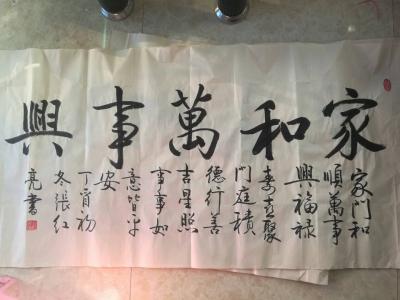 家和萬事興
家門和
順萬事
興福禄
寿喜聚
門庭積
德行善
吉星照
事事如
意皆平
安
丁酉初
冬張红
亮書